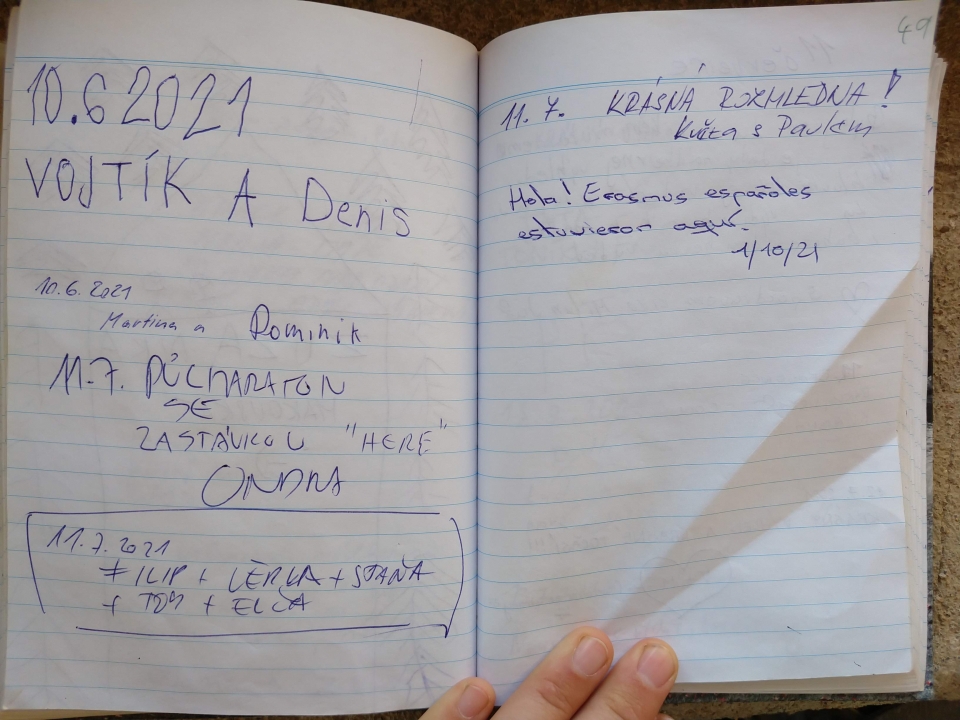 10.6 2021
VOJTÍK A Denis
10.6.2021
Martina a Dominik
11.7. PŮLMARATON
SE
ZASTÁVKOU "HERE"
ONDRA
11.7.2021
FILIP + VĚRKA + STAŇA
+ TOM + ELČA
49
11.7. KRÁSNÁ ROZHLEDNA!
s Pavlem
Hola! Erasmus españoles
estuvieron aquí.
1/10/21